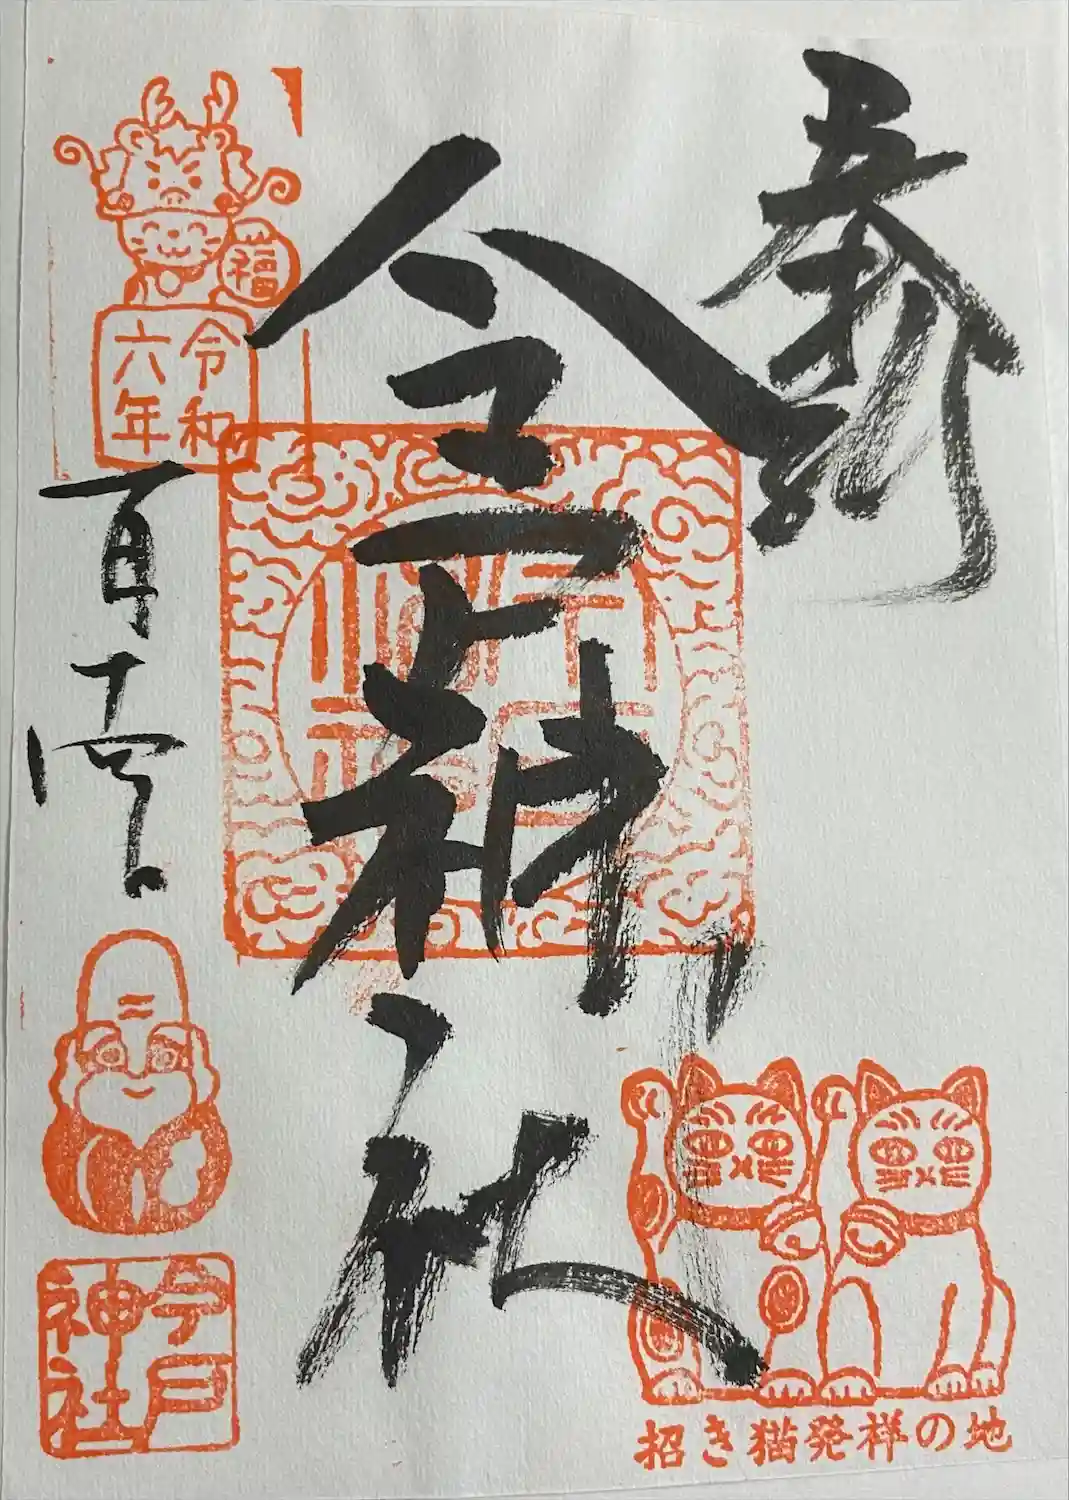 奉拝
今戸神社
福
令和
六年
一月十
今戸
神社
招き猫発祥の地